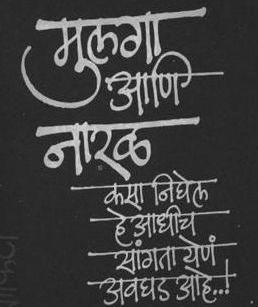 मुलगा
आणि
नारळ
कसा निघेल
हे आधीच
सांगता येणं
अवघड आहे..!